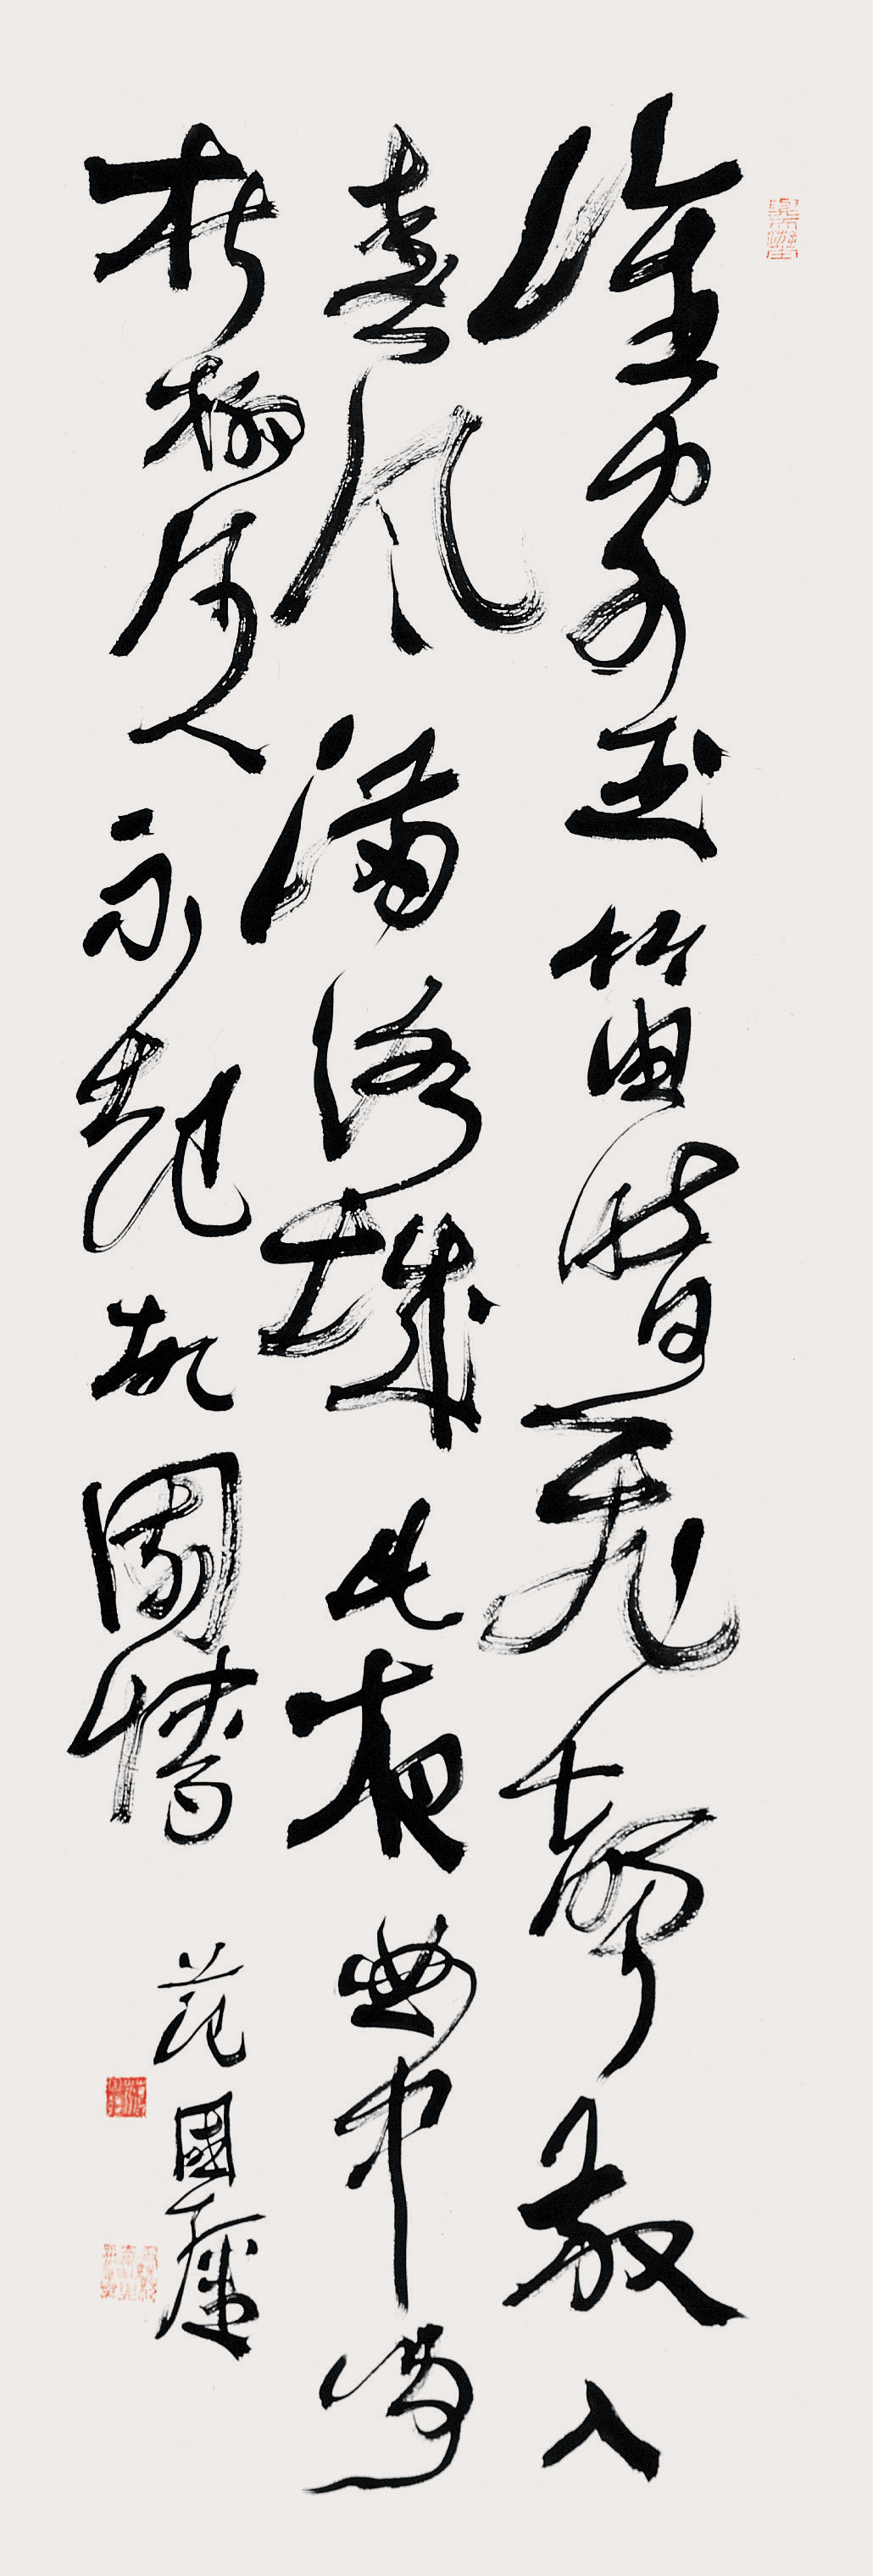 誰家玉笛暗飛聲散入
春風滿洛城此夜曲中聞
折柳何人不起故園情
范國